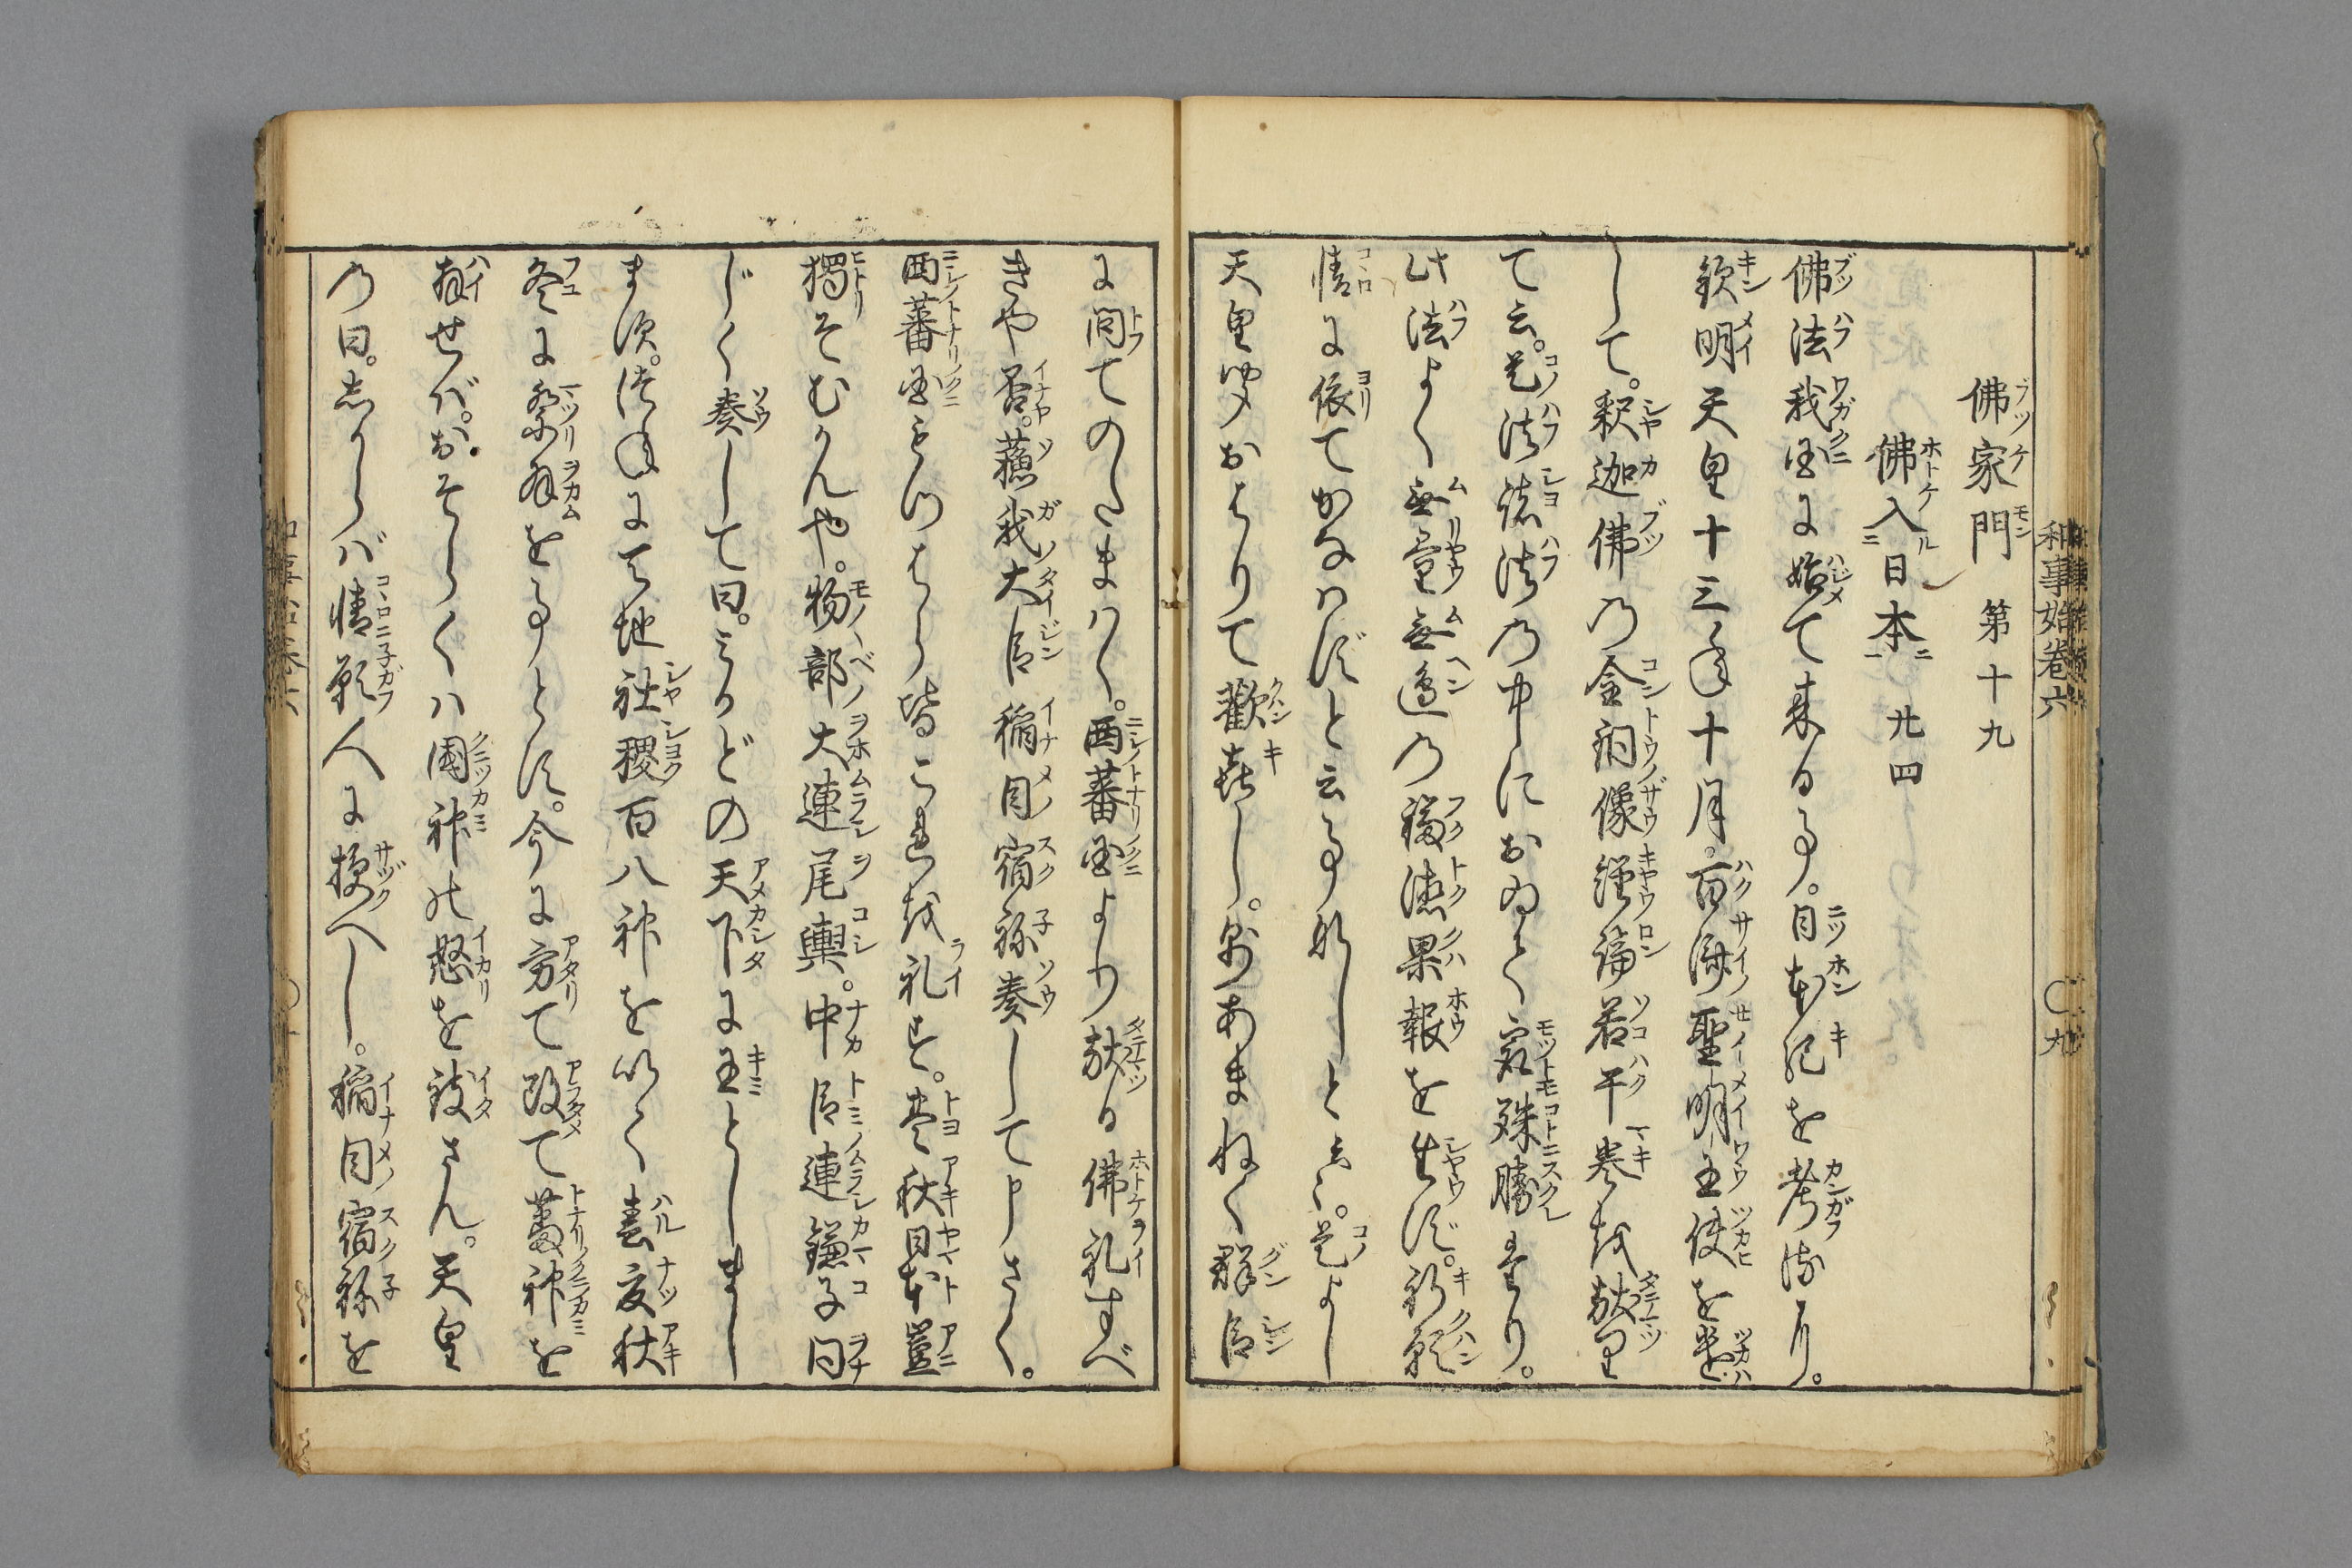 佛家門　第十九
佛入日本　廿四
佛法我国に始て来る事。日本紀を考るに。
欽明天皇十三年十月。百済聖明王使を遣
して。釈迦佛の金銅像経論若干巻を献り
て云。是法諸法の中におゐて最殊勝たり。
此法よく無量無邊の福徳果報を生ず。祈願
情に依てかなはずと云事なしと云々。是よし
天皇聞おはりて歓喜し。あまねく群臣
に問てのたまはく。西蕃国より献る佛礼すべ
きや否。蘓我大臣稲目宿祢奏して申さく。
西蕃国もつはら皆これを礼す。豊秋日本豈
獨そむかんや。物部大連尾輿。中臣連鎌子同
じく奏して曰。みかどの天下に王としまし
ます。つねに天地社稷百八神を以て春夏秋
冬に祭拜を事とす。今に方て改て蕃神を
拜せば。おそらくは國神の怒を致さん。天皇
の曰。しからば情願人に授へし。稲目宿祢を
和事始巻六　〇九